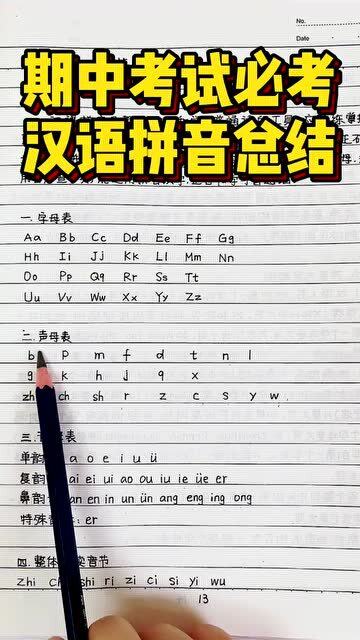 No.
Date
期中考试必考
汉语拼音总结
一.字母表
Aa Bb Cc Dd Ee Ff Gg
Hh Ii Jj Kk Ll Mm Nn
Oo Pp Qq Rr Ss Tt
Uu Vv Ww Xx Yy Zz
二.声母表
b p m f d t n l
g k h j q x
zh ch sh r z c s y w
三. 表
单韵 a o e i u ü
复韵 ai ei ui ao ou iu ie üe er
鼻韵 an en in un ün ang eng ing ong
特殊 er
四.整体 音节
zhi ch shi ri zi ci si yi wu
13